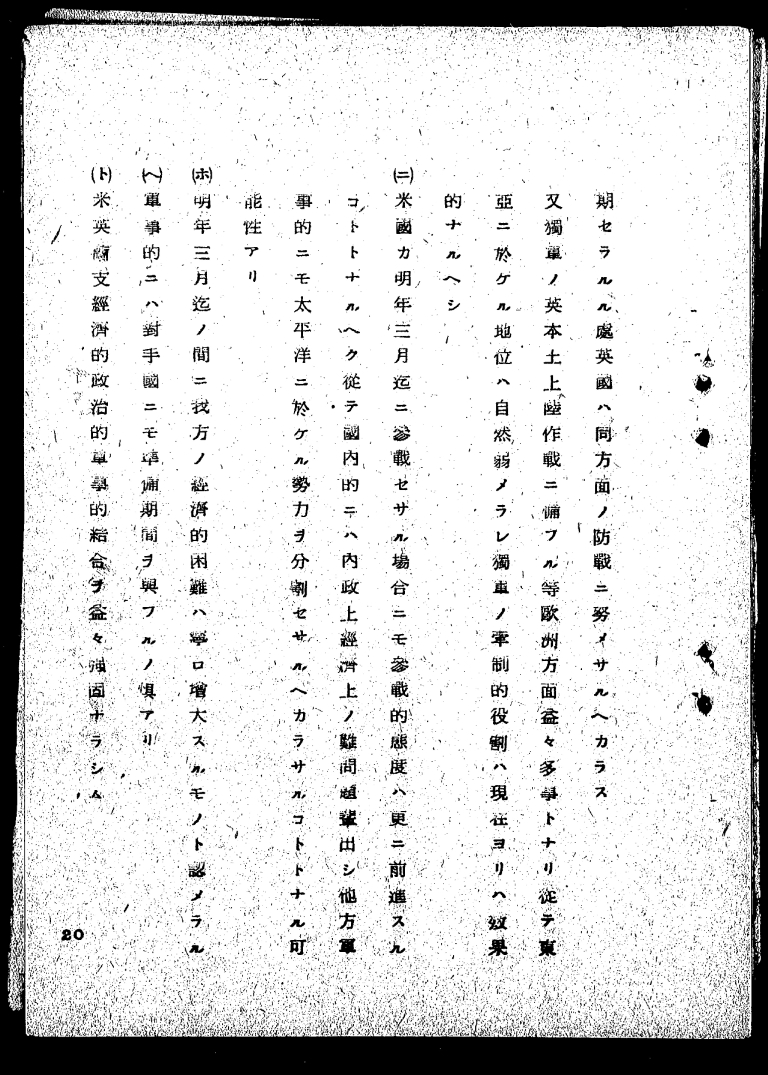 期セラルル處英國ハ同方面ノ防戰ニ努メサルヘカラス
又獨軍ノ英本土上陸作戰ニ備フル等歐洲方面益々多事トナリ從テ東
亞ニ於ケル地位ハ自然弱メラレ獨軍ノ牽制的役割ハ現在ヨリハ效果
的ナルヘシ
(ニ)米國カ明年三月迄ニ參戰セサル場合ニモ參戰的態度ハ更ニ前進スル
コトトナルヘク從テ國內的ニハ內政上經濟上ノ難問題輩出シ他方軍
事的ニモ太平洋ニ於ケル勢力ヲ分割セサルヘカラサルコトトナル可
能性アリ
(ホ)明年三月迄ノ間ニ我方ノ經濟的困難ハ寧ロ增大スルモノト認メラル
(ヘ)軍事的ニハ對手國ニモ準備期間ヲ與フルノ惧アリ
(ト)米英蘭支經濟的政治的軍事的結合ヲ益々强固ナラシム
20